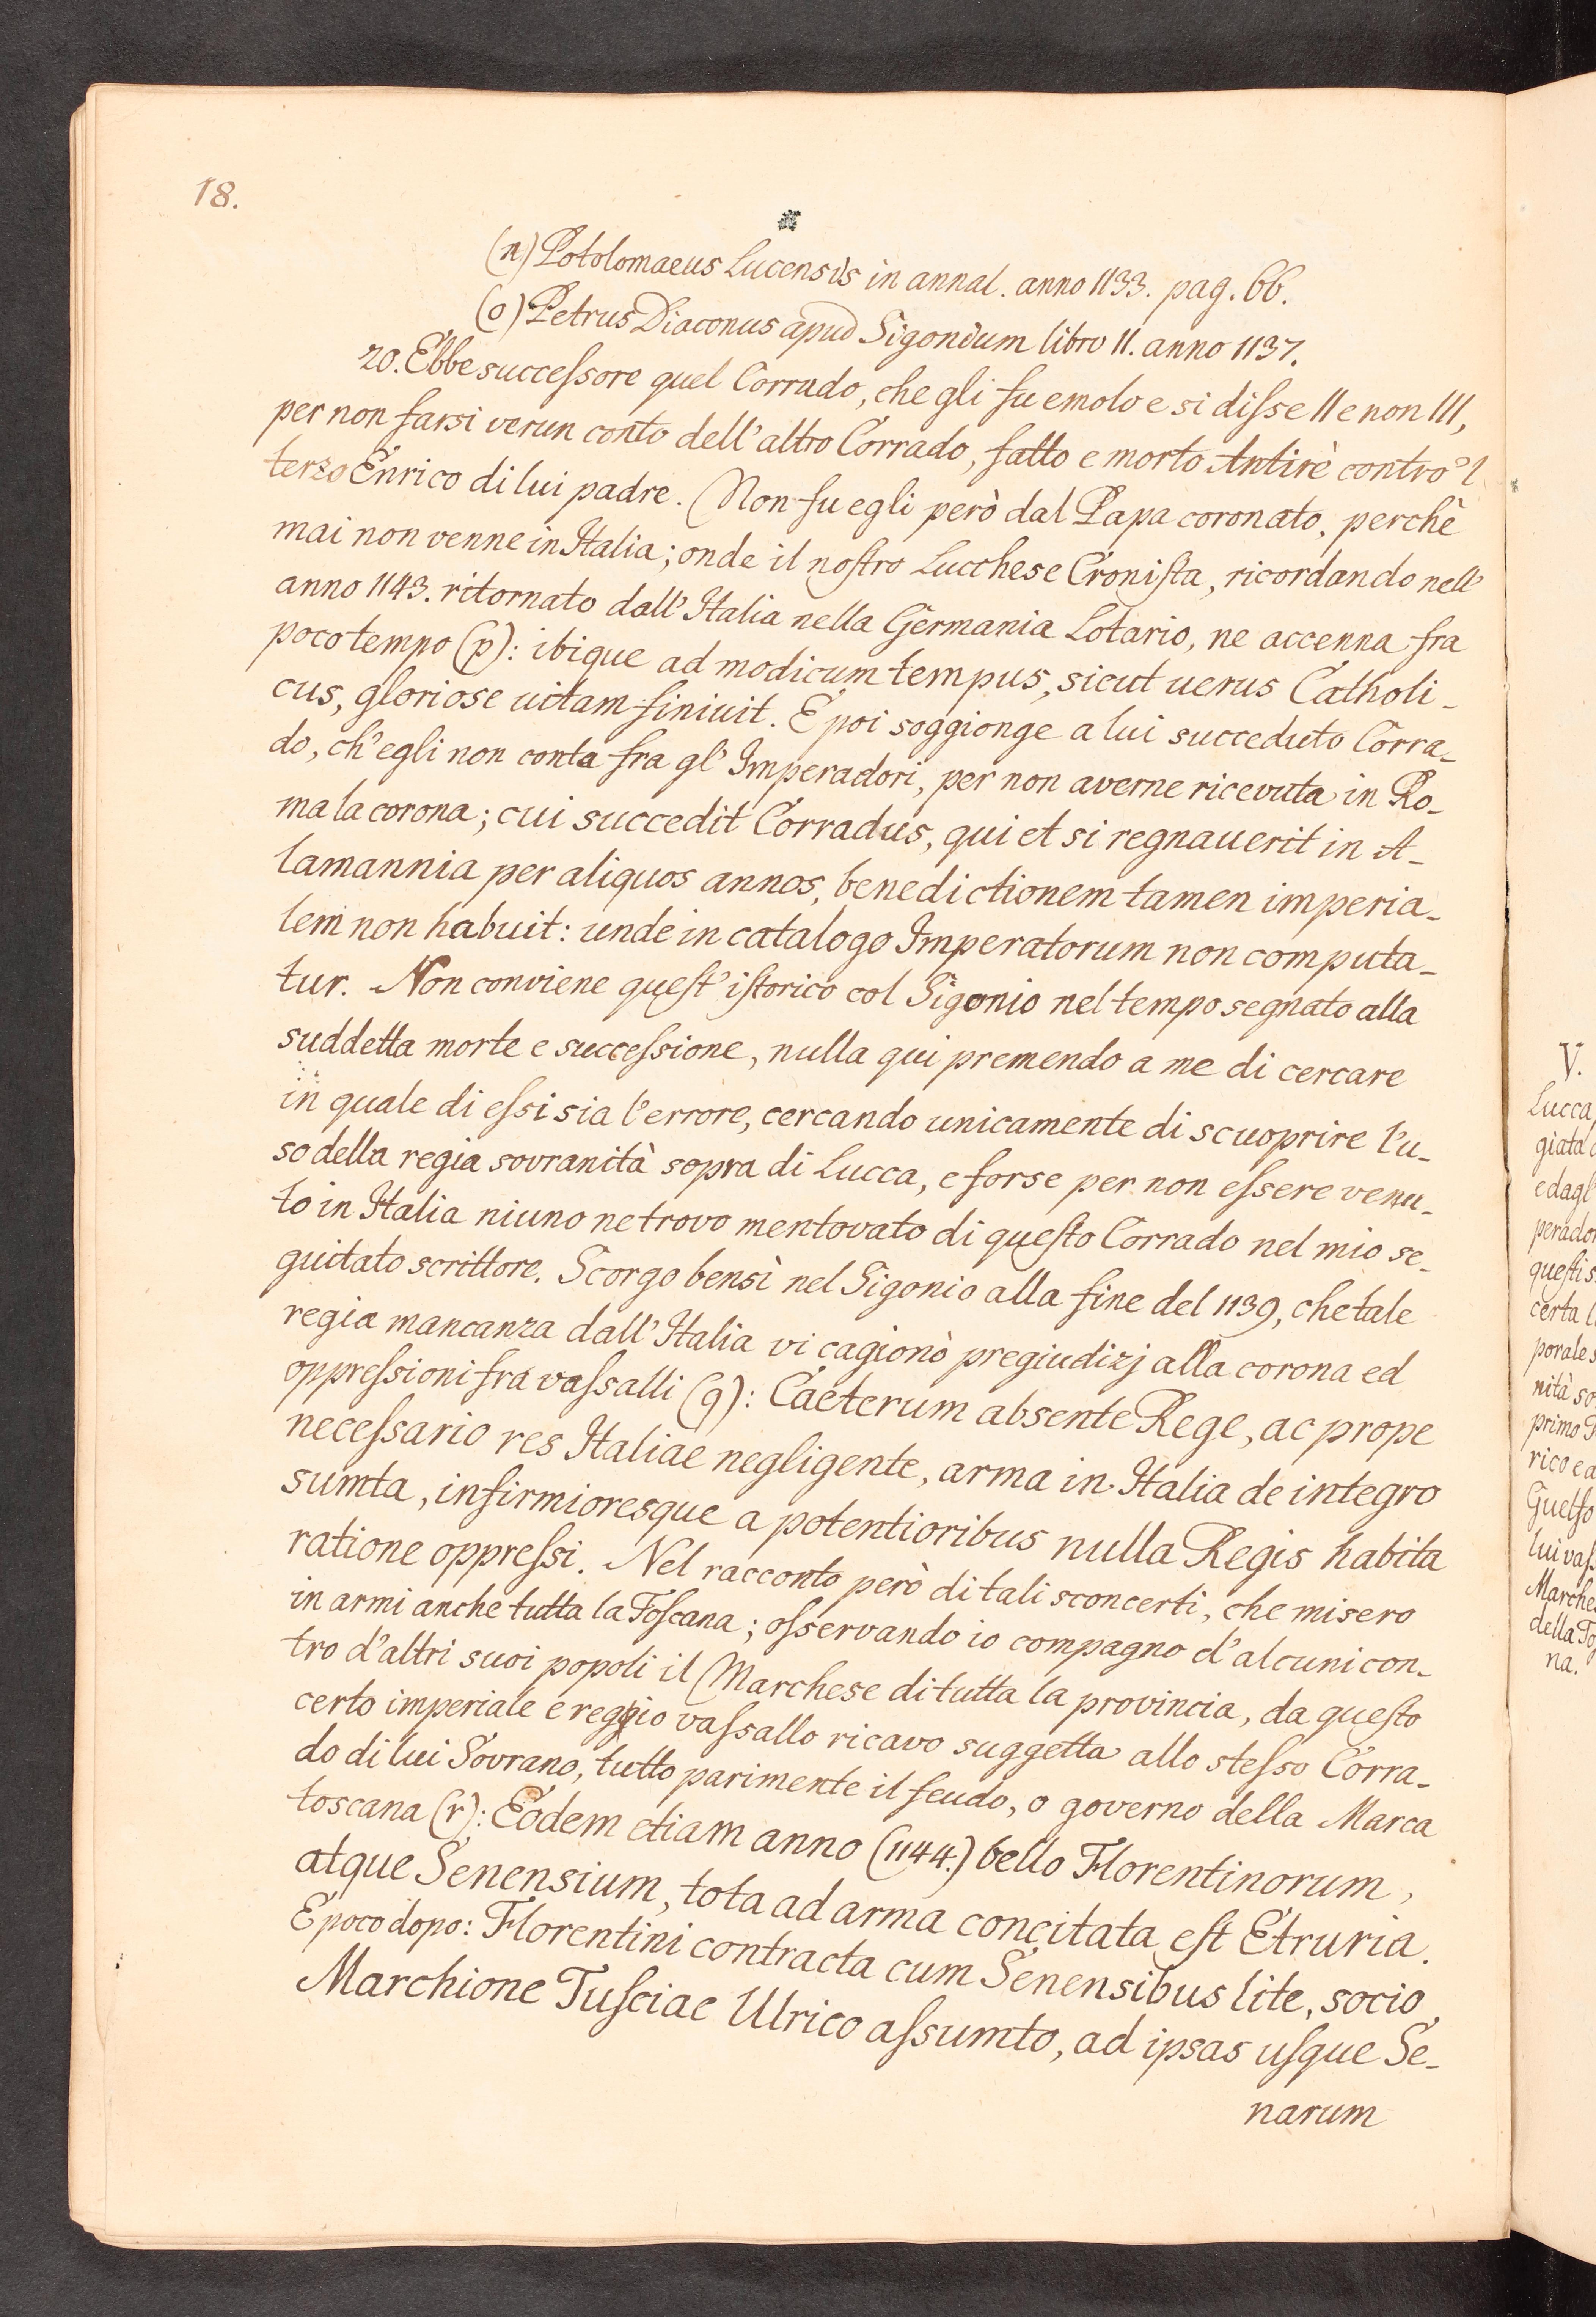 18.
(n) Ptolomaeus Lucensis in annal. anno 1133. pag. 66.
(o) Petrus Diaconus apud Sigonium libro 11. anno 1137.
20. Ebbe successore quel Corrado, che gli fu emolo e si disse II e non III,
per non farsi verun conto dell'altro Corrado, fatto e morto Antirè contro 'l
terzo Enrico di lui padre. Non fu egli però dal Papa coronato, perchè
mai non venne in Italia; onde il nostro Lucchese Cronista, ricordando nell'
anno 1143. ritornato dall'Italia nella Germania Lotario, ne accenna fra
poco tempo (p): ibique ad modicum tempus, sicut uerus Catholi-
cus, gloriose uitam finiuit. E poi soggionge a lui succeduto Corra-
do, ch'egli non conta fra gl'Imperadori, per non averne ricevuta in Ro-
ma la corona; cui succedit Corradus, qui et si regnauerit in A-
lamannia per aliquos annos, benedictionem tamen imperia-
lem non habuit: unde in catalogo Imperatorum non computa-
tur. Non conviene quest'istorico col Sigonio nel tempo segnato alla
suddetta morte e successione, nulla qui premendo a me di cercare
in quale di essi sia l'errore, cercando unicamente di scuoprire l'u-
so della regia sovranità sopra di Lucca, e forse per non essere venu-
to in Italia niuno ne trovo mentovato di questo Corrado nel mio se-
guitato scrittore. Scorgo bensì nel Sigonio alla fine del 1139, che tale
regia mancanza dall'Italia vi cagionò pregiudizj alla corona ed
oppressioni fra vassalli (q): Caeterum absente Rege, ac prope
necessario res Italiae negligente, arma in Italia de integro
sumta, infirmioresque a potentioribus nulla Regis habita
ratione oppressi. Nel racconto però di tali sconcerti, che misero
in armi anche tutta la Toscana; osservando io compagno d'alcuni con-
tro d'altri suoi popoli il Marchese di tutta la provincia, da questo
certo imperiale e reggio vassallo ricavo suggetta allo stesso Corra-
do di lui Sovrano, tutto parimente il feudo, o governo della Marca
toscana (r): Eodem etiam anno (1144.) bello Florentinorum,
atque Senensium, tota ad arma concitata est Etruria.
E poco dopo: Florentini contracta cum Senensibus lite, socio
Marchione Tusciae Ulrico assumto, ad ipsas usque Se-
narum
V.
Lucca,
giata
e dagl'
perador
questi s
certa
porale s
nità so
primo F
rico e a
Guelfo
lui vas
Marches
della To
na.